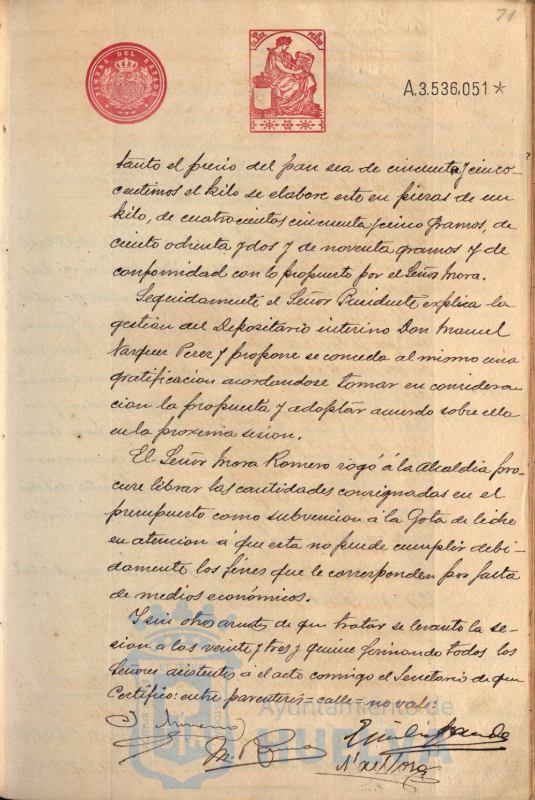 71
TIMBRE DEL ESTADO
A.3.536.051*
tanto el precio del pan sea de cincuenta y cinco
centimos el kilo se elabore este en piezas de un
kilo, de cuatrocientos cincuenta y cinco gramos, de
ciento ochenta y dos y de noventa gramos y de
conformidad con lo propuesto por el Señor Mora.
Seguidamente el Señor Presidente explica la
gestion del Depositario interino Don Manuel
Vazquez Perez y propone se conceda al mismo una
gratificacion acordandose tomar en considera
cion la propuesta y adoptar acuerdo sobre ella
en la proxima sesion.
El Señor Mora Romero rogó á la Alcaldia pro-
cure librar las cantidades consignadas en el
presupuesto como subvencion á la Gota de leche
en atencion á que esta no puede cumplir debi-
damente los fines que le corresponden por falta
de medios económicos.
Y sin otros asuntos de que tratar se levanto la se-
sion a las veinte y tres y quince firmando todos los
Señores asistentes á el acto conmigo el Secretario de que
Certifico: entre parentesis = calle = no vale
Ayuntamiento de
HUELVA